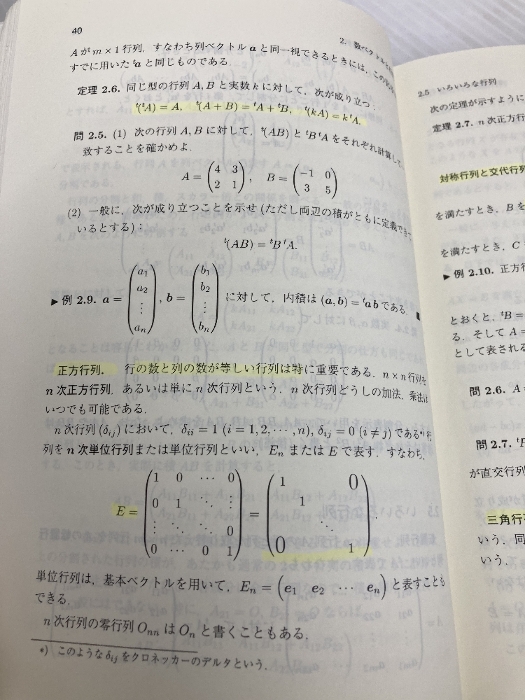 40
2. 数ベクトル
A が m × 1 行列, すなわち列ベクトル a と同一視できるときには, この
すでに用いた ᵗa と同じものである.
定理 2.6. 同じ型の行列 A, B と実数 k に対して, 次が成り立つ:
ᵗ(ᵗA) = A, ᵗ(A + B) = ᵗA + ᵗB, ᵗ(kA) = kᵗA.
問 2.5. (1) 次の行列 A, B に対して, ᵗ(AB) と ᵗBᵗA をそれぞれ計算して
致することを確かめよ.
A = (4 3 / 2 1), B = (−1 0 / 3 5)
(2) 一般に, 次が成り立つことを示せ (ただし両辺の積がともに定義
いるとする):
ᵗ(AB) = ᵗBᵗA.
▶ 例 2.9. a = (a₁ a₂ ⋮ aₙ), b = (b₁ b₂ ⋮ bₙ) に対して, 内積は (a, b) = ᵗab である.
正方行列. 行の数と列の数が等しい行列は特に重要である. n × n 行列を
n 次正方行列, あるいは単に n 次行列という. n 次行列どうしの加法, 乗法は
いつでも可能である.
n 次行列 (δᵢⱼ) において, δᵢᵢ = 1 (i = 1, 2, ⋯, n), δᵢⱼ = 0 (i ≠ j) である*)行
列を n 次単位行列または単位行列といい, Eₙ または E で表す. すなわち,
E = (1 0 ⋯ 0 / 0 1 ⋱ ⋮ / ⋮ ⋱ ⋱ 0 / 0 ⋯ 0 1) = (1 0 / 1 / ⋱ / 0 1).
単位行列は, 基本ベクトルを用いて, Eₙ = (e₁ e₂ ⋯ eₙ) と表すことも
できる.
n 次行列の零行列 Oₙₙ は Oₙ と書くこともある.
*) このような δᵢⱼ をクロネッカーのデルタという.
2.5 いろいろな行列
次の定理が示すように
定理 2.7. n 次正方行
対称行列と交代行列
を満たすとき, B を
を満たすとき, C
▶ 例 2.10. 正方行
とおくと, ᵗB =
る. そして A =
として表される
問 2.6. A
問 2.7.
が直交行列
三角行
いう. 同
いう.